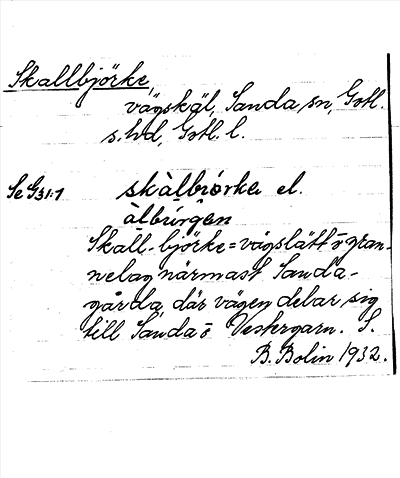 Skallbjörke,
vägskäl, Sanda sn, Gotl.
s. hd, Gotl. l.
Se G31:1 skàlbiǫrkę el.
àlbu̇rgęn
Skall-björke = vägslätt o gran-
nelag närmast Sanda-
gårda, där vägen delar sig
till Sanda o Vestergarn. S.
B. Bolin 1932.